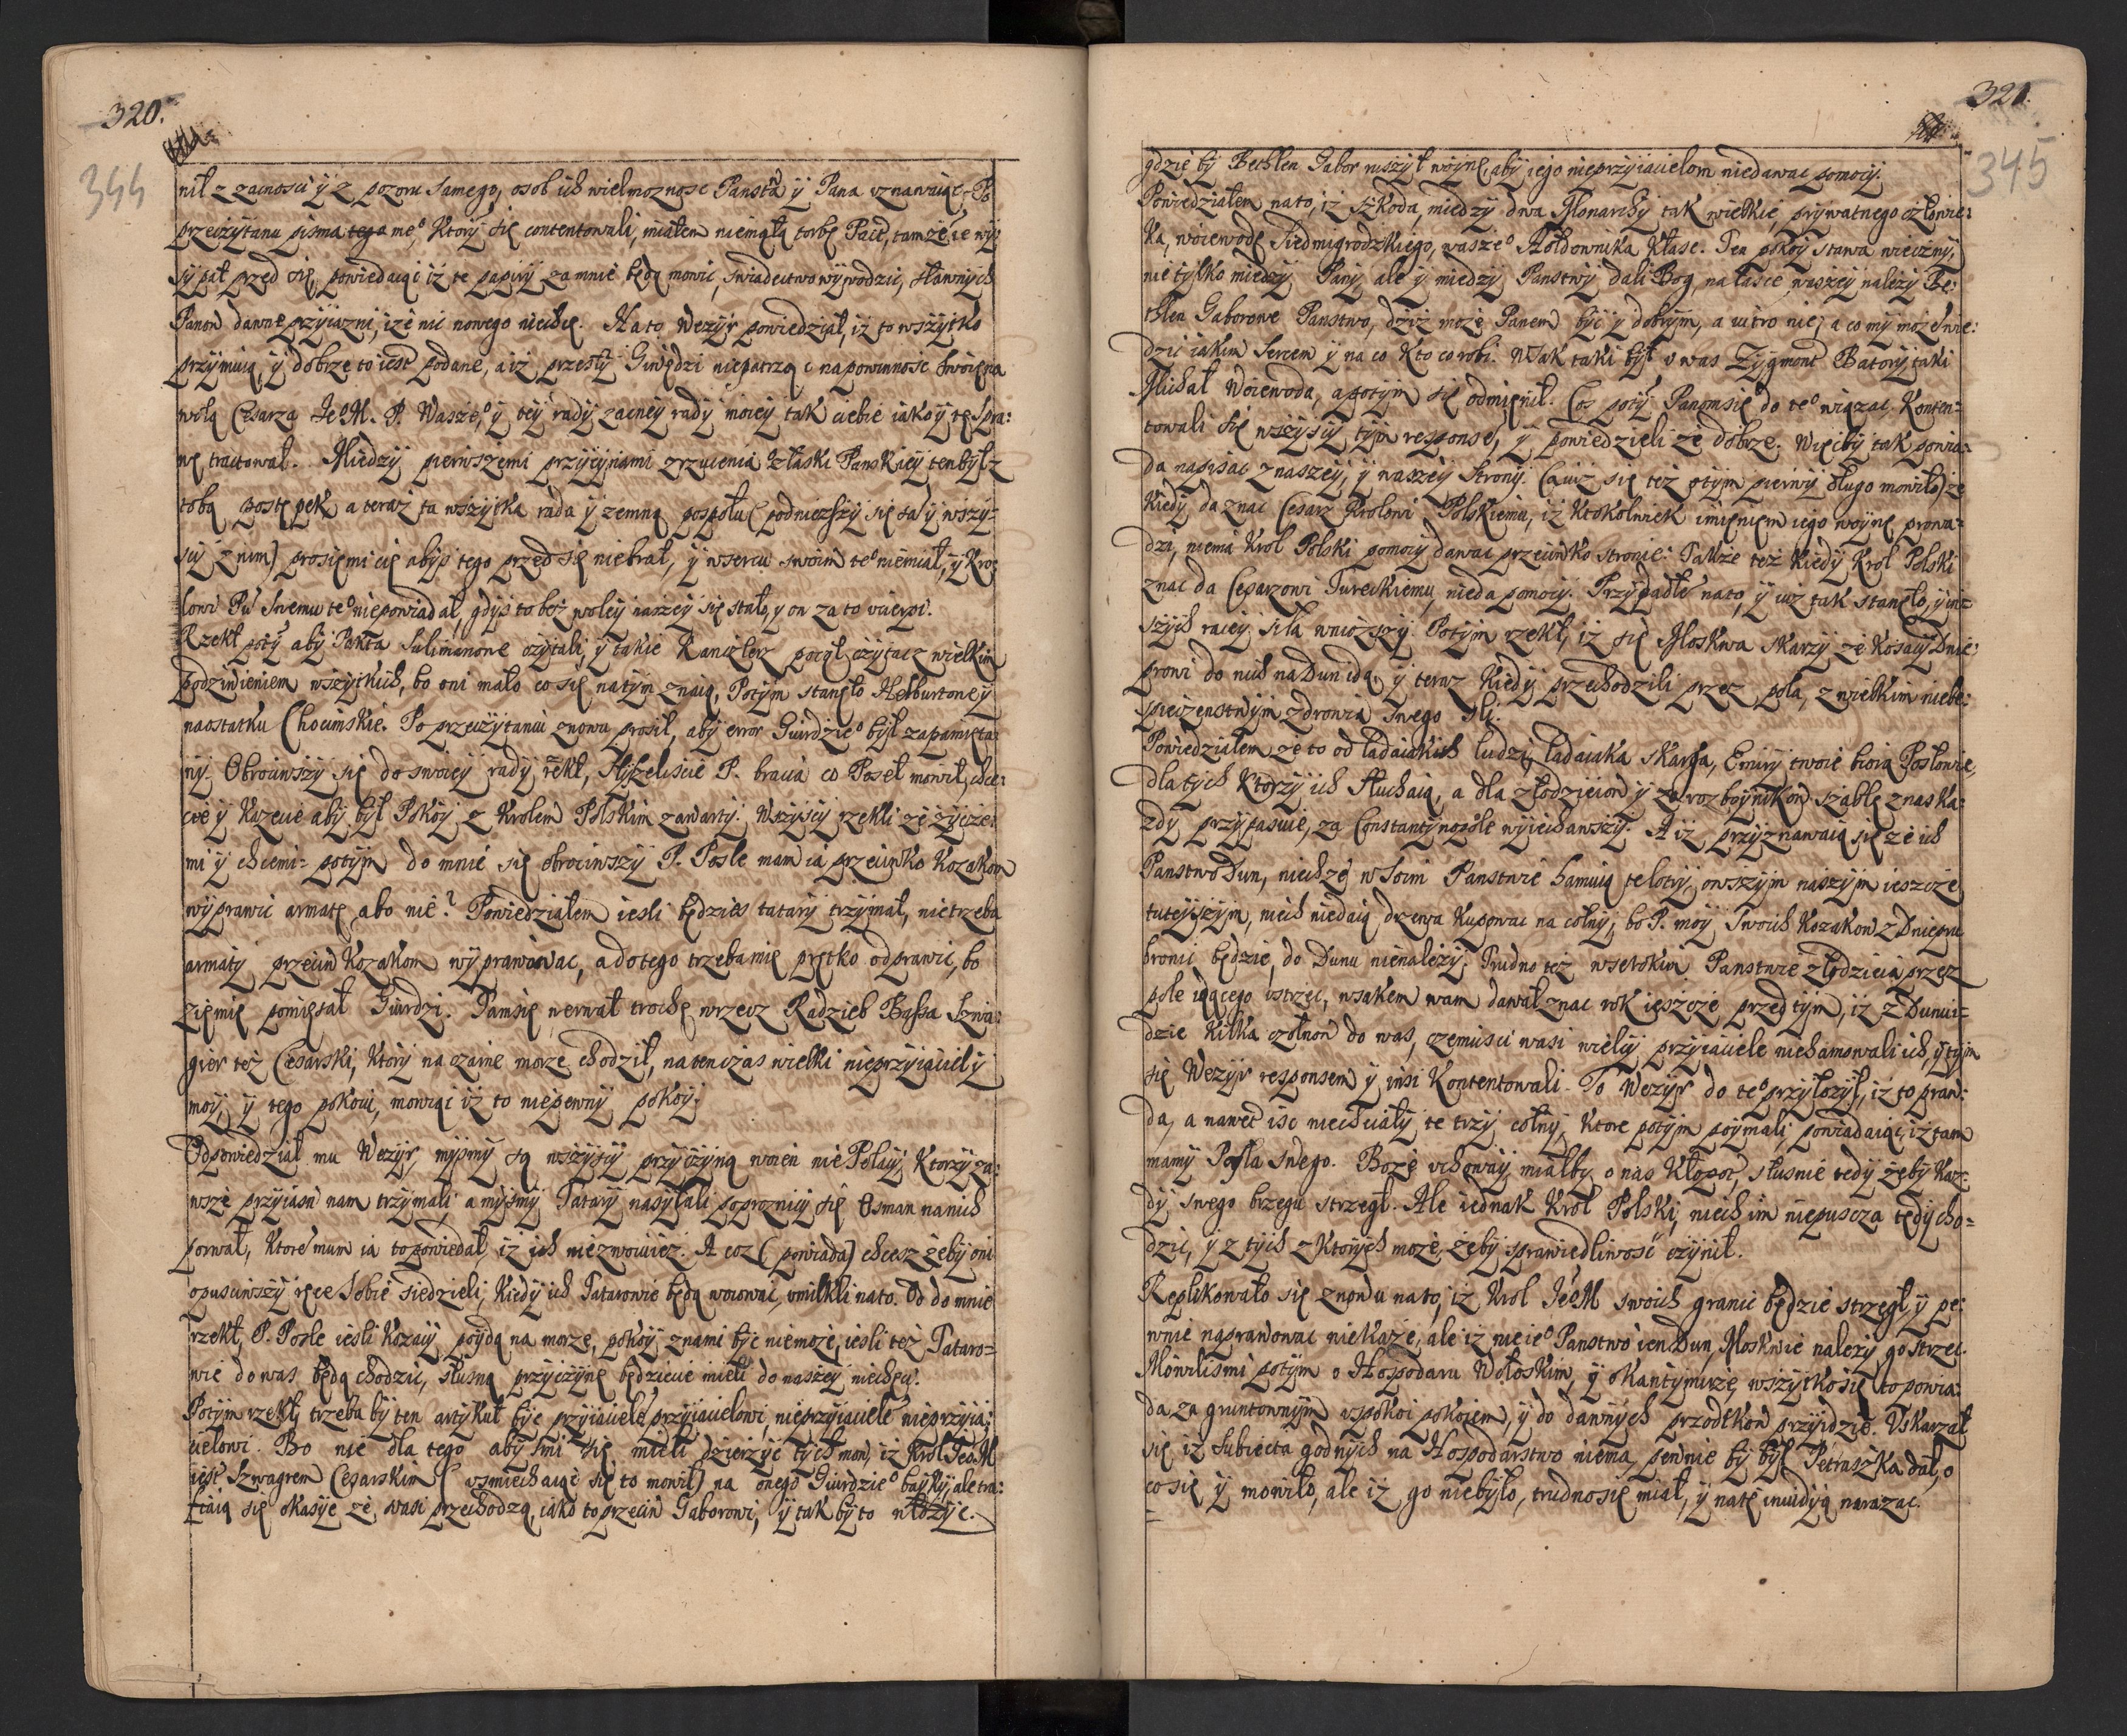 320.
344
nił z zacnosci ÿ z pozoru samego, osob ich wielmoznosc Panstw ÿ Pana vznawaiąc. Po
przeczÿtanu pisma tego me⁰, Ktorÿ się contentowali, miałem niemałą torbę Pact, tam że ie wÿ=
sÿpał przed się, powiedaiąc iż te papirÿ za mnie będą mowic, swiadectwo wÿwodzic, sławnÿch
Panow dawneÿ przÿiazni, iże nic nowego niechcę. Na to Wezÿr powiedział, iż to wszÿtko
przÿmuią, ÿ dobrze to iest podane, a iż przeszłÿ Giurdzi niepatrząc na powinnosc swoię na
wolą Cesarza Je⁰M. P. Wasze⁰, ÿ teÿ radÿ zacneÿ radÿ moieÿ tak ciebie iako ÿ tę spra=
wę tractował. Miedzÿ pierwszemi przÿczÿnami zrzucenia z łaski Panskieÿ ten bÿł z
tobą postępek a teraz ta wszÿtka rada ÿ zemną pospołu (podniozszÿ się sam ÿ wszÿ=
scÿ z nim) prosiemi cię abÿs tego przed się niebrał, ÿ w sercu swoim te⁰ niemiał, ÿ Kro=
lowi Pu Swemu te⁰ niepowiadał, gdÿż to bez woleÿ naszeÿ się stało, ÿ on za to ucierpi.
Rzekł potÿm abÿ Pakta Sulimanowe czÿtali, ÿ takie Kanclerz począł czÿtac z wielkim
podziwieniem wszÿtkich, bo oni mało co się na tÿm znaią, Potÿm stanęło Herburtoweÿ
naostatku Chocimskie. Po przeczÿtaniu znowu prosił, abÿ error Giurdzie⁰ bÿł zapamięta=
nÿ. Obrociwszÿ się do swoieÿ radÿ rzekł, Słÿszeliscie P. bracia co Poseł mowił, chce=
cie ÿ Kazecie abÿ bÿł Pokoÿ z Krolem Polskim zawartÿ. Wszÿscÿ rzekli że zÿcze=
mi ÿ chcemi= potÿm do mnie się obrociwszÿ P. Posle mam ia przeciwko Kozakom
wÿprawic armatę abo nie? Powiedziałem iesli będzies tatarÿ trzÿmał, nie trzeba
armatÿ przeciw Kozakom wÿprawowac, a do tego trzeba mię prętko odprawic, bo
ziemię pomięszał Giurdzi. Tam się werwał trochę w rzecz Radzieb Bassa Szwa=
gier też Cesarski, Ktorÿ na czarne morze chodził, na ten czas wielki nieprzÿiaciel ÿ
moÿ, ÿ tego pokoiu, mowiąc iż to niepewnÿ pokoÿ.
Odpowiedział mu Wezÿr, mÿsmÿ są wszÿscÿ przÿczÿną woien nie Polacÿ, Ktorzÿ za=
wsze przÿiasn nam trzÿmali, a mÿsmÿ Tatarÿ nasÿłali, poprozniey się Osman na nich
porwał, Ktore mum ia to powiedał, iż ich nie zwoiuiez. A coz (powiada) chcesz żebÿ oni
opusciwszÿ ręce sobie siedzieli, Kiedÿ ich Tatarowie będą woiowac, umilkli na to. On do mnie
rzekł, P. Posle iesli Kozacÿ poÿdą na morze, pokoÿ z nami bÿc niemoże, iesli też Tataro=
wie do was będą chodzic, słusną przÿczÿnę będziecie mieli do naszeÿ niechęci.
Potÿm rzekł, trzeba bÿ ten artÿkuł bÿc przÿiaciele przÿiacielowi, nieprzÿiaciele nieprzÿia=
cielowi. Bo nie dla tego abÿsmi się mieli dzierzÿc tÿch mow, iż Krol Je⁰M
iest Szwagrem Cesarskim (usmiechaiąc się to mowił) na onego Giurdzie⁰ baÿkÿ, ale tra=
fiaią się okasÿe że wasi przechodzą, iako to przeciw Gaborowi, ÿ tak bÿ to włozÿc.
321.
345
gdzie bÿ Bethlen Gabor ruszÿł woÿnę, abÿ iego nieprzÿiacielom niedawac pomocÿ.
Powiedziałem na to, iż szkoda, miedzÿ dwa Monarchÿ tak wielkie, prÿwatnego człowie=
ka, woiewodę Siedmigrodzkiego, wasze⁰ Hołdownika Kłasc. Ten pokoÿ stawa wiecznÿ,
nie tÿlko miedzÿ Panÿ ale ÿ miedzÿ Panstwÿ dali Bog, na łasce waszeÿ nalezÿ Be=
thlen Gaborowe Panstwo, dzis może Panem bÿc ÿ dobrÿm, a iutro nie, a co mÿ może wie=
dzic iakim sercem ÿ na co Kto co robi. Wsak taki bÿł v was Zÿgmont Batorÿ, taki
Michał Woiewoda, a potÿm się odmięnił. Cos potÿm Panom się do te⁰ wiązac, Konten=
towali się wszÿscÿ tÿm response, ÿ powiedzieli że dobrze. Więc bÿ tak powia=
da napisac z naszeÿ, ÿ waszeÿ stronÿ. (a iuż się też o tÿm pierwÿ długo mowiło) że
Kiedÿ da znac Cesarz Krolowi Polskiemu, iż Ktokolwiek imięniem iego woÿnę prowa=
dzi, niema Krol Polski pomocÿ dawac przeciwko stronie: Takze też Kiedÿ Krol Polski
znac da Cesarzowi Tureckiemu, nieda pomocÿ. Przÿpadłe na to, ÿ iuż tak stanęło, ÿ in=
szÿch raciÿ siła wniozszÿ. Potÿm rzekł, iż się Moskwa skarzÿ że Kosacÿ Dnie=
prowi do nich na Dun idą, ÿ teraz Kiedÿ przechodzili przez pola, z wielkim niebe=
spieczenstwÿm zdrowia swego szli.
Powiedziałem że to od ladaiakich ludzi, ladaiaka skarga, Emirÿ twoie biorą Posłowie,
dla tÿch Ktorzÿ ich słuchaią, a dla złodzieiow ÿ za rozboÿnikow szablę z nas ka=
zdÿ przÿpasuie, za Constantÿnopole wÿiechawszÿ. A iż przÿznawaią się że ich
Panstwo Dun, niechże w swoim Panstwie hamuią te łotrÿ, owszÿm naszÿm ieszcze
tuteÿszÿm, niech niedaią drzewa kupowac na cołnÿ, bo P. moÿ swoich Kozakow z Dniepru
bronic będzie, do Dunu nienalezÿ: Trudno też w serokim Panstwie złodzieia przez
pole idącego ustrzec, wsakem wam dawał znac rok ieszcze przed tÿm, iż z Dunu i=
dzie Kilka czołnow do was, czemusci wasi wielcÿ przÿiaciele niehamowali ich, ÿ tÿm
się Wezÿr responsem ÿ insi Kontentowali. To Wezÿr do te⁰ przÿłozÿł, iż to praw=
da, a nawet isc niechciałÿ te trzÿ cołnÿ, Ktore potÿm poÿmali, powiadaiąc, iż tam
mamÿ Posła swego. Boże vchowaÿ, miałbÿ o nas Kłopot, słusnie tedÿ żebÿ Kaz=
dÿ swego brzegu strzegł. Ale iednak Krol Polski, niech im niepuscza tędÿ cho=
dzic, ÿ z tÿch z Ktorÿch może, żebÿ sprawiedliwosc czÿnił.
Replikowało się znowu na to, iż Krol Je⁰M swoich granic będzie strzegł, ÿ pe=
wnie naprawowac niekaże, ale iż nie ie⁰ Panstwo ien Dun, Moskwie nalezÿ go strzec.
Mowilismi potÿm o Hospodaru Wołoskim, ÿ o Kantÿmirze, wszÿtko się to powia=
da za gruntownÿm vspokoi pokoiem, ÿ do dawnÿch przodkow przÿidzie. Vskarzał
się iż subiecta godnÿch na Hospodarstwo niema, pewnie bÿ bÿł Petraszka dał, o
co się ÿ mowiło, ale iż go niebÿło, trudno się miał, ÿ na tę inuidÿą narazac.